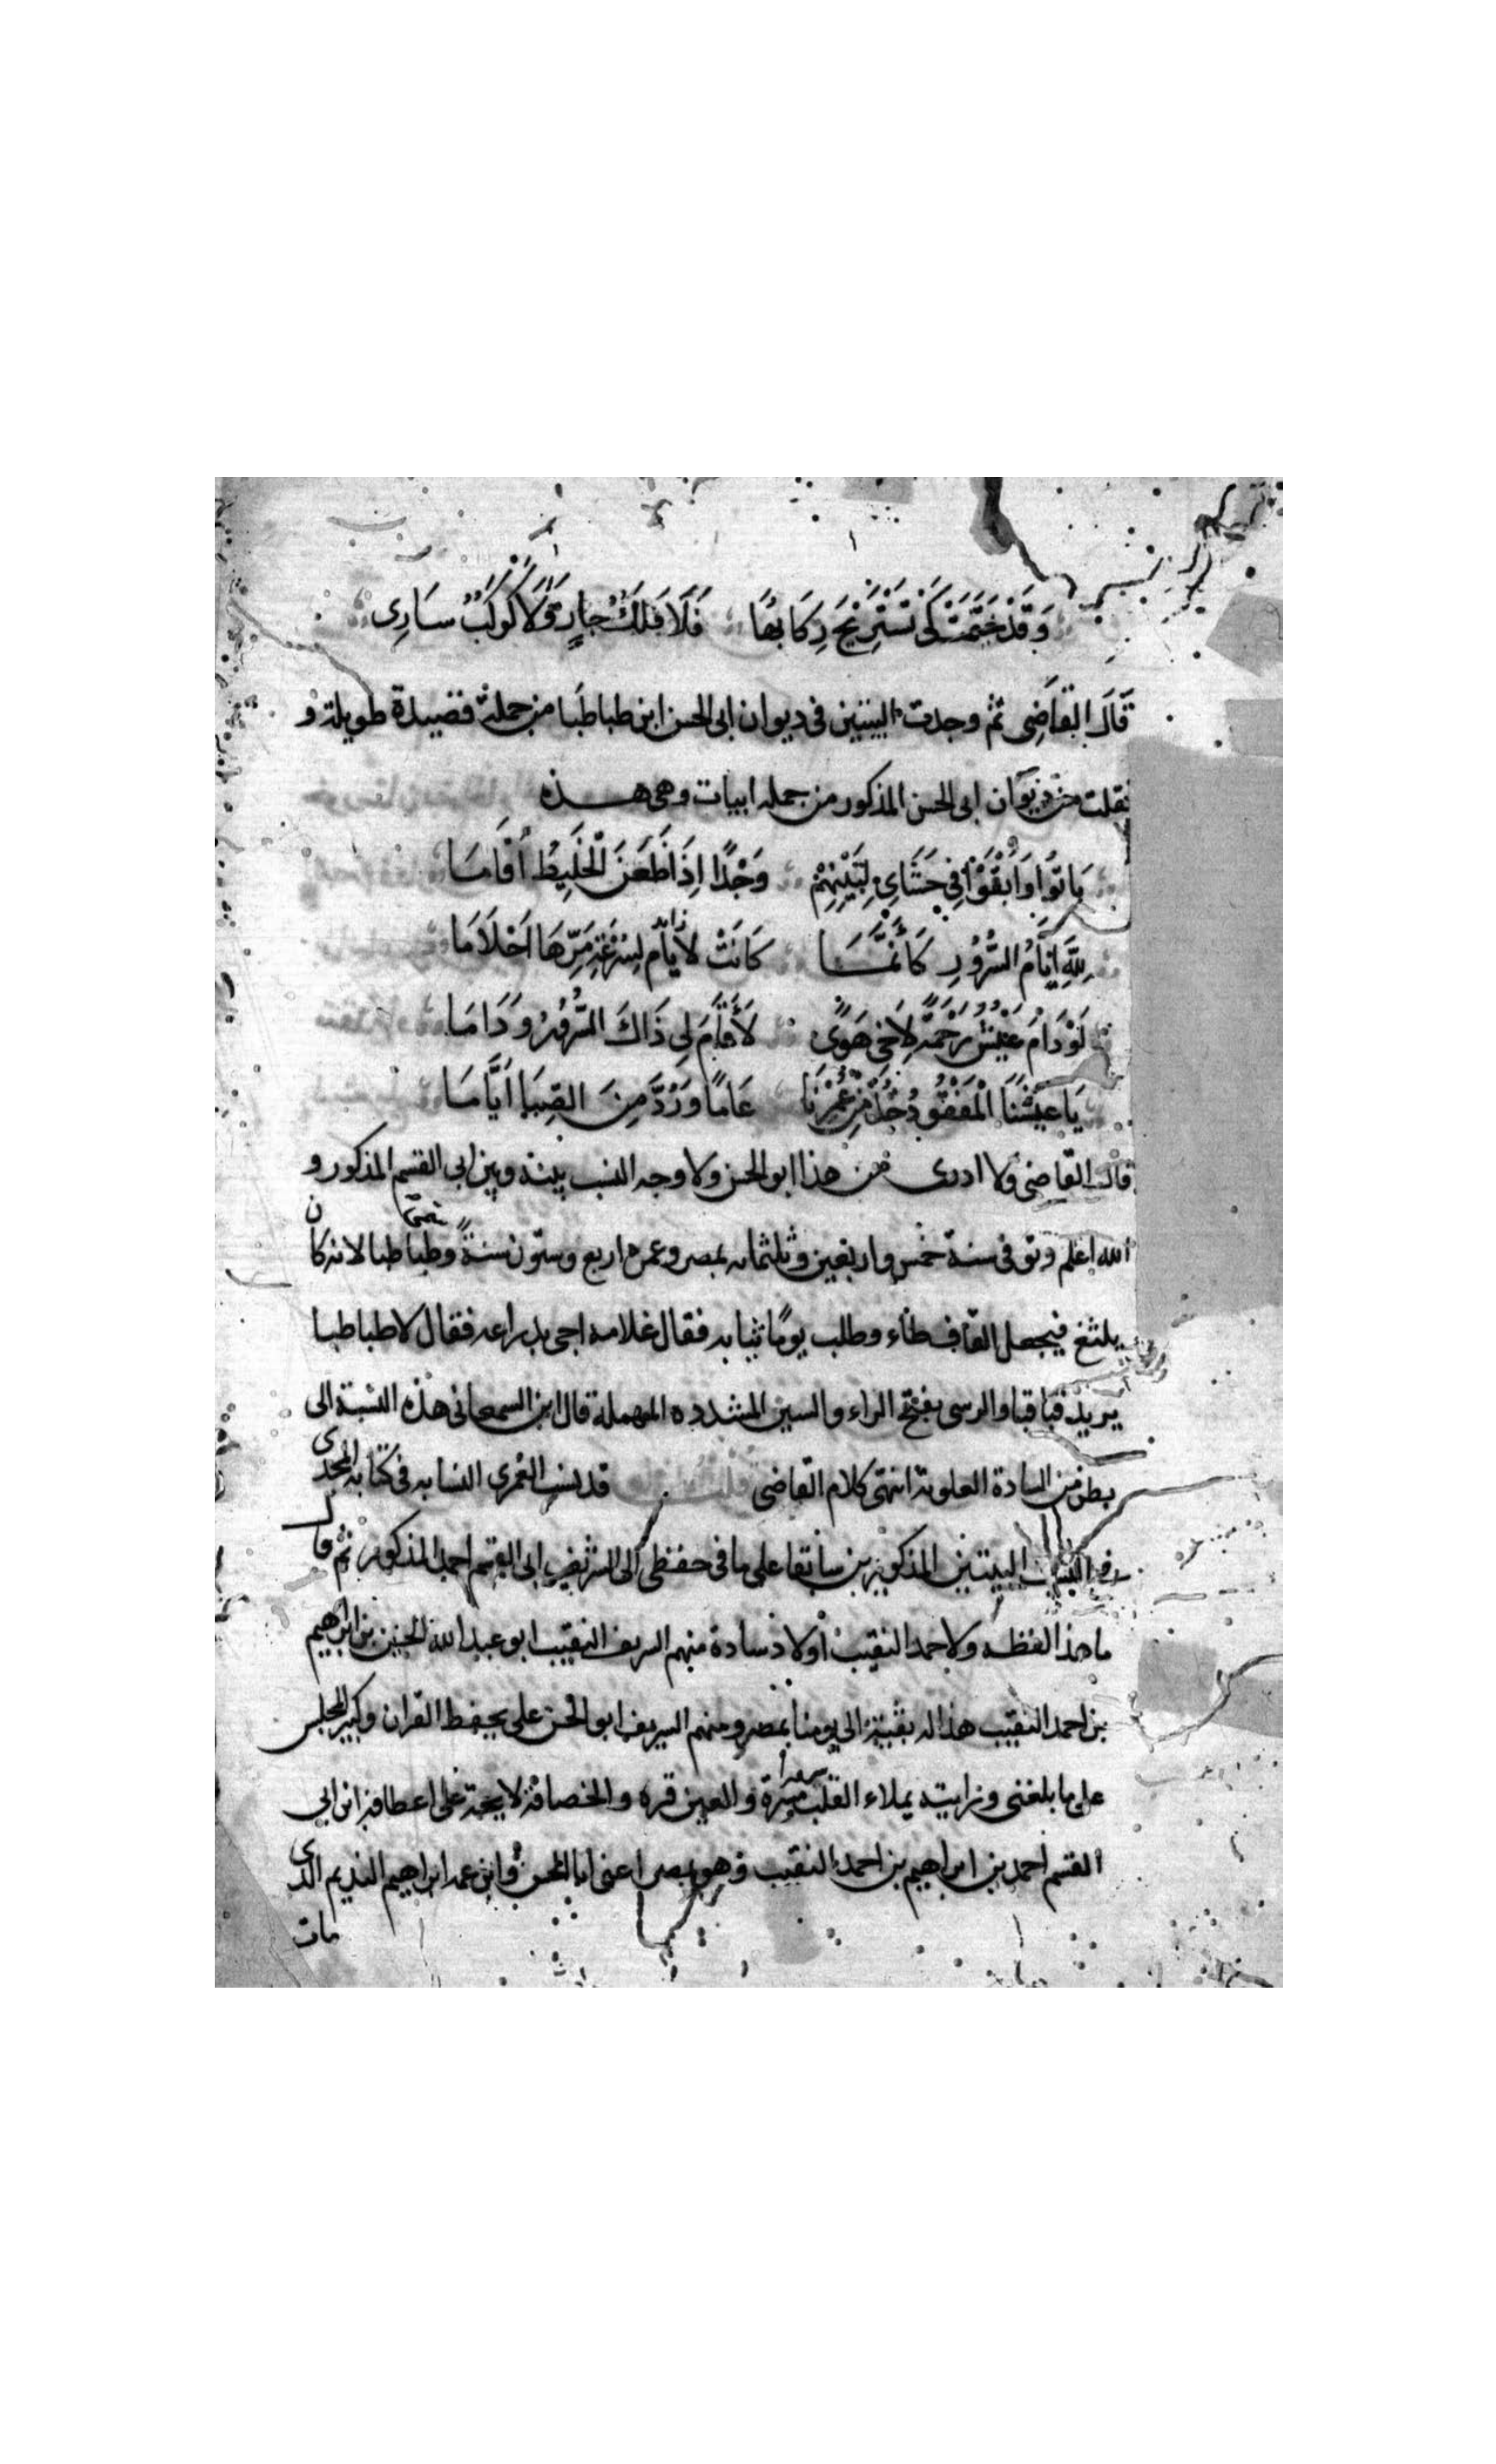 وَقَدْ خَيَّمَتْ كَيْ تَسْتَرِيحَ رِكَابُهَا فَلَا فَلَكٌ جَارٍ وَلَا كَوْكَبٌ سَارِي
قَالَ القاضِي ثم وجدت البيتين في ديوان ابى الحسن ابن طباطَبا من جملة قصيدة طويلة و
نقلت من ديوان ابى الحسن المذكور من جمله ابيات وهى هـــذه
بَانوُا وَأَبْقَوْا فِي حَشَايَ لِبَيْنِهِمْ وَجْدًا إِذَا ظَعَنَ الْخَلِيطُ أَقَامَا
لِلَّهِ ايَّامُ السُّرُورِ كَأَنَّمَــا كَانَتْ لأيام لِسُرْعَةِ مَرِّهَا اَحْلَامَا
لَوْ دَامَ عَيْشٌ رَحْمَةً لِاَخِي هَوًى لَأَقَامَ لِى ذَاكَ السُّرُورُ وَدَامَا
يَا عَيْشَنَا الْمَفْقُودُ خُذْ مِنْ عُمْرِنَا عَامًا وَرُدَّ مِنَ الصِّبَا اَيَّامَا
قال القاضى ولا ادرى من هذا ابو الحسن ولا وجه النسب بينه وبين ابى القسم المذكور و
الله اعلم وتوفى سنة خمس واربعين وثلثمائه بمصر وعمره اربع وستون سنةً وطباطبا لانه كان
يلثغ فيجعل القاف طاء وطلب يومًا ثيابه فقال غلامه اجى بدراعه فقال لا طباطبا
يريد قبا قبا والرسى بفتح الراء والسين المشدده المهملة قال ابن السمعانى هذه النسبة الى
بطن من السادة العلوية انتهى كلام القاضى قلت قد نسب العمرى النسابه فى كتابه المجدى
البيتين المذكورين سابقا على ما فى حفظى الى الشريف ابى القسم احمد المذكور ثم قال
ما هذا لفظه ولاحمد النقيب أولاد سادة منهم الشريف النقيب ابو عبد الله الحسين بن ابراهيم
بن احمد النقيب هذا له بقية الى يومنا بمصر ومنهم الشريف ابو الحسن على يحفظ القران وكبير المجلس
على ما بلغنى ورايته يملاء القلب مسرة والعين قره والخصافة لايحة على اعطافه ابن ابى
القسم احمد بن ابراهيم بن احمد النقيب وهو بمصر اعنى ابا الحسن وابن عمه ابراهيم النديم الذى
مات